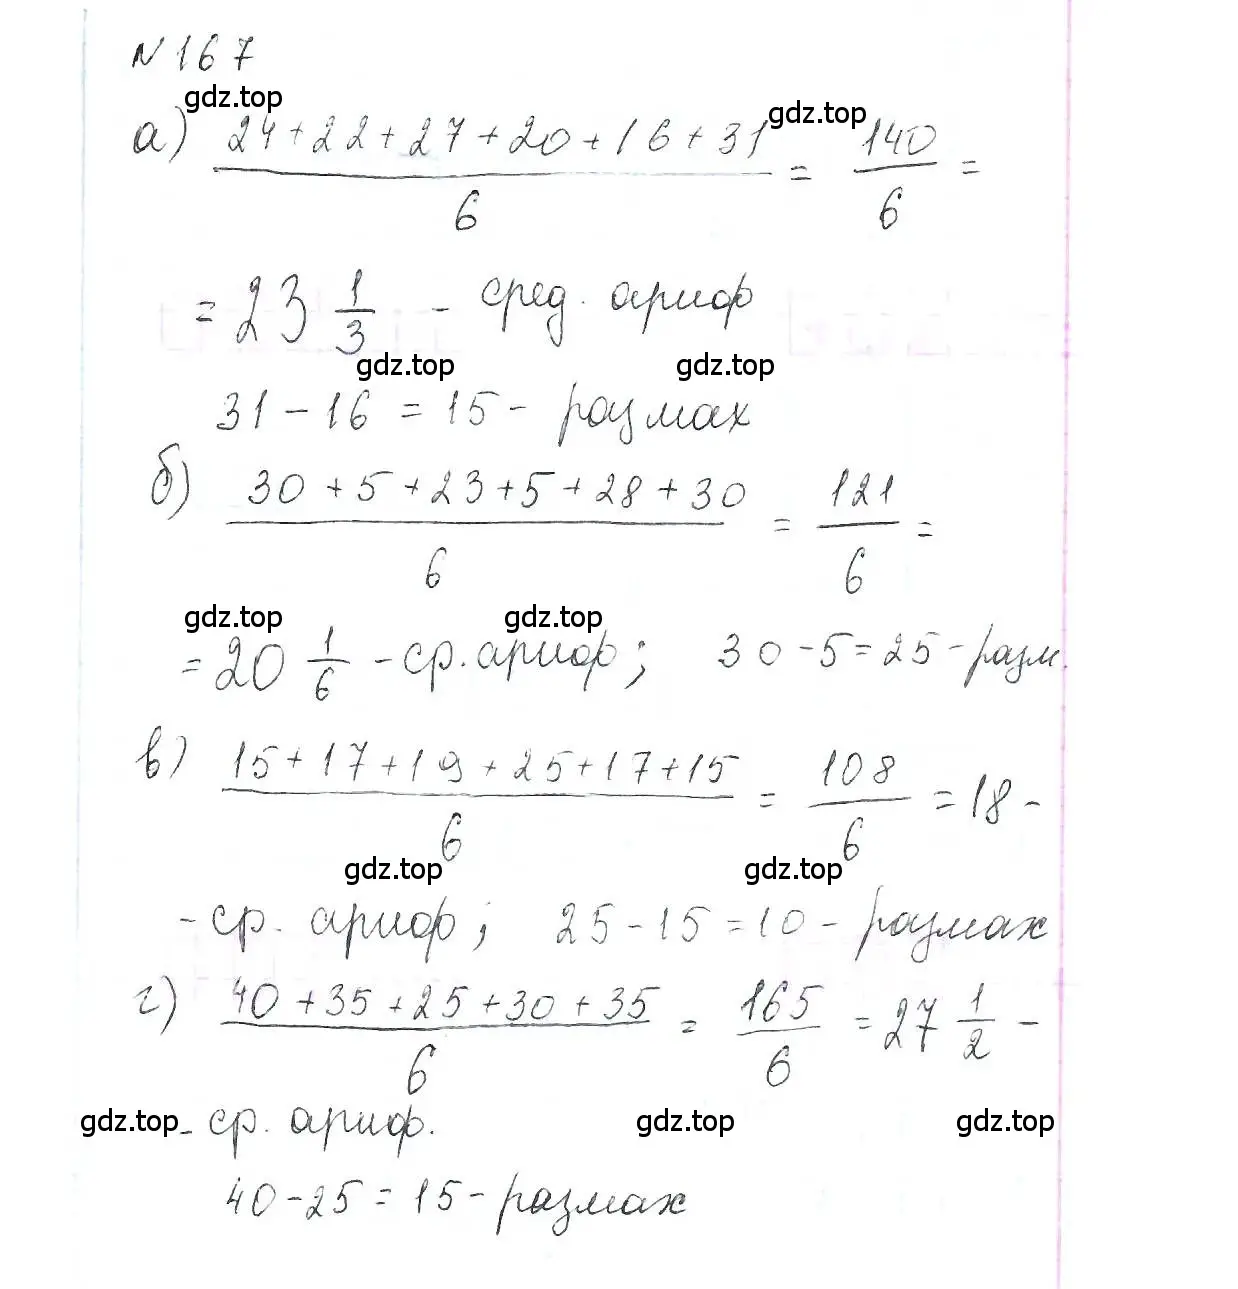 N 167
gdz.top
gdz.top
а) (24+22+27+20+16+31)/6 = 140/6 =
= 23 1/3 - сред. ариф
gdz.top gdz.top
31 - 16 = 15 - размах
б) (30+5+23+5+28+30)/6 = 121/6 =
gdz.top gdz.top
= 20 1/6 - ср. ариф; 30-5=25 - разм.
в) (15+17+19+25+17+15)/6 = 108/6 = 18 -
gdz.top gdz.top
- ср. ариф; 25-15=10 - размах
г) (40+35+25+30+35)/6 = 165/6 = 27 1/2 -
gdz.top gdz.top gdz.top
- ср. ариф.
40-25=15 - размах